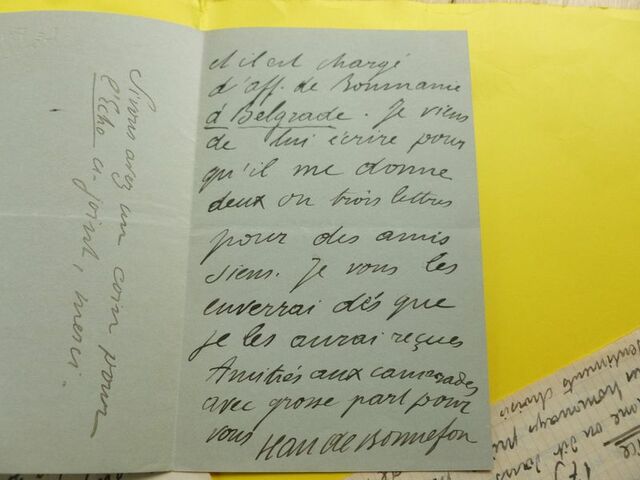 et il est chargé
d'aff. de Roumanie
à Belgrade. Je viens
de lui écrire pour
qu'il me donne
deux ou trois lettres
pour des amis
siens. Je vous les
enverrai dès que
je les aurai reçues
Amitiés aux camarades
avec grosse part pour
vous Jean de Bonnefon
Si vous avez un coin pour
l'Echo ci-joint, merci.
un hommage
sentiments choisis
ame on dit dans